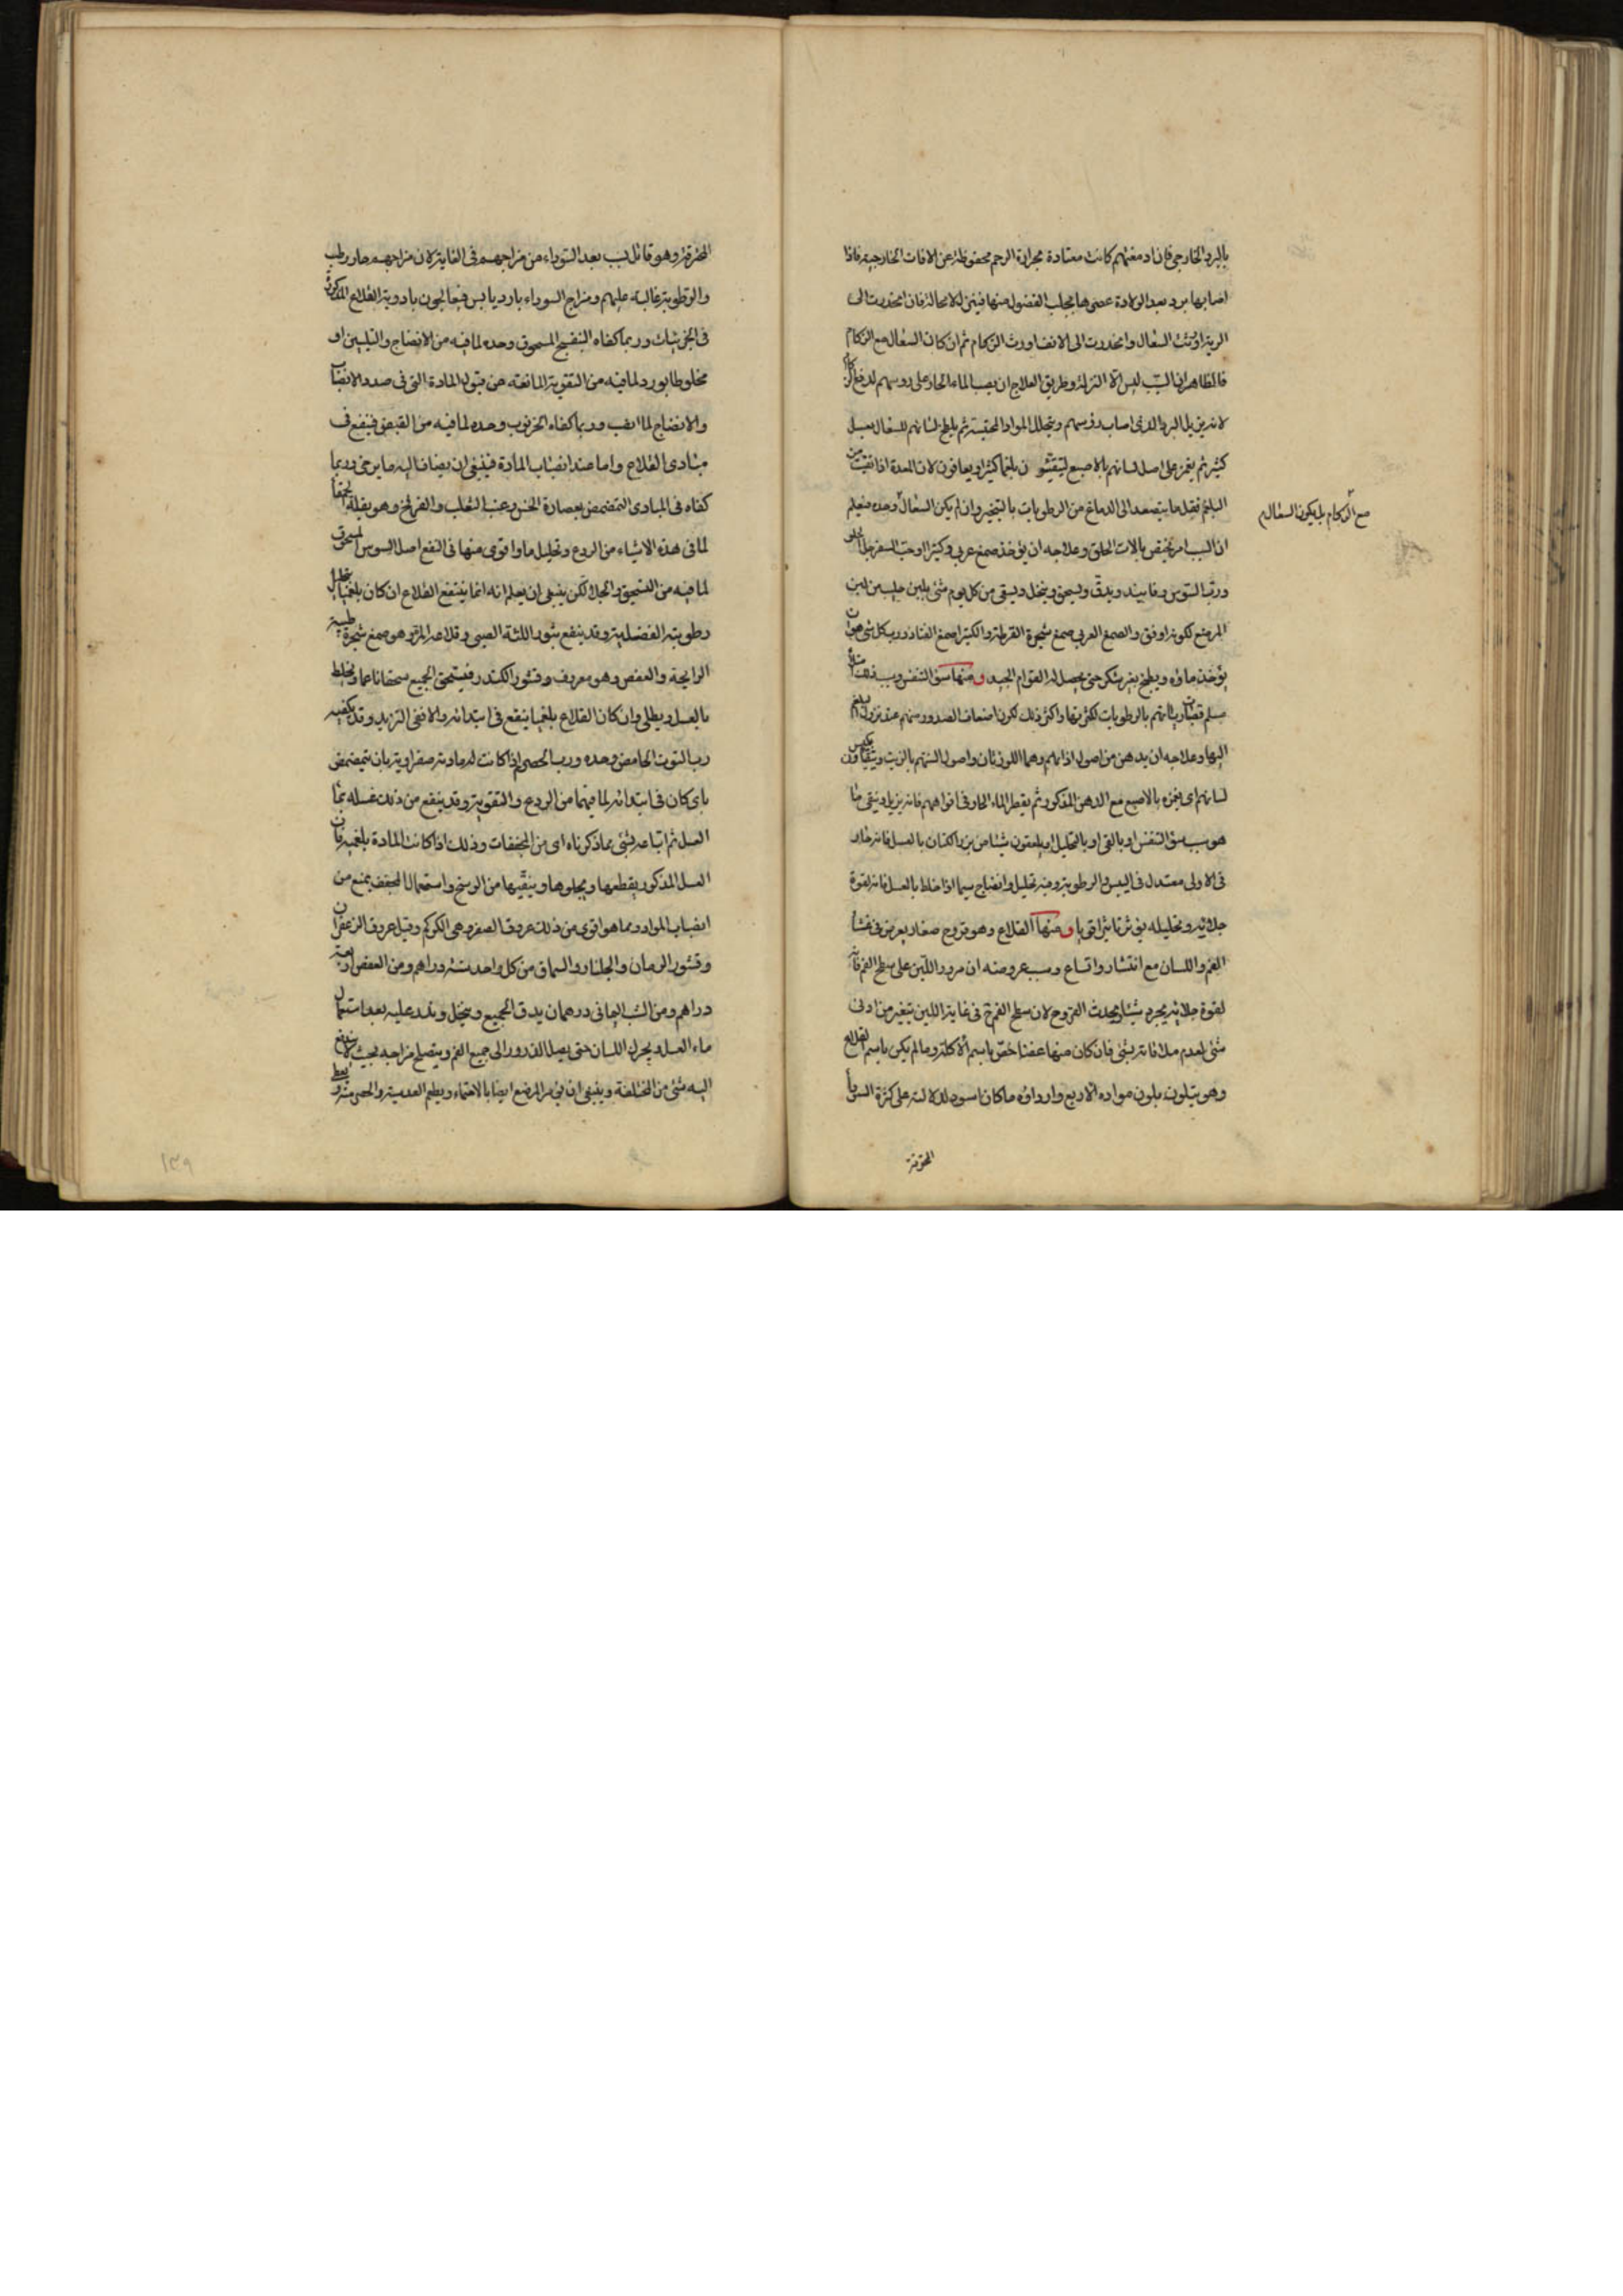 بالبرد الخارجى فان ادمغتهم كانت معتادة بحرارة الرحم محفوظة عن الافات الخارجية فاذا
اصابها برد بعد الولادة عصرها بجلب الفضول منها فينزل لا محالة فان انحدرت الى
الرية اورثت السعال وان انحدرت الى الانف اورث الزكام ثم ان كان السعال مع الزكام
فالظاهر ان السبب ليس الا النزلة وطريق العلاج ان يصب الماء الحار على روسهم لدفع
لانه يزيل البرد الذى اصاب رؤسهم ويتحلل المواد المحتبسة ثم يلطخ لسانهم للسعال بعسل
كثير ثم يغمز على اصل لسانهم بالاصبع ليتقيئون بلغما كثيرا ويعافون لان المعدة اذا نقيت من
البلغم فقل ما يتصعد الى الدماغ من الرطوبات بالتبخير وان لم يكن السعال وحده فيعلم
مع الزكام بل يكون السعال
ان السبب امر يختص بالات الحلق وعلاجه ان يؤخذ صمغ عربى وكثيرا وحب السفرجل
ورب السوس وفانيد ويدق ويسحق وينخل ويسقى من كل يوم شئ بلبن حليب من لبن
المرضع لكونه اوفق والصمغ العربى صمغ شجرة القرظة والكثيرا صمغ القتاد ورب كل شئ هو ان
يؤخذ ماؤه ويطبخ بغير سكر حتى يحصل له القوام الجيد ومنها سوء التنفس وسبب ذلك
بالرطوبات لكثرتها واكثر ذلك لكون اضعاف الصدور منهم عند نزول البلغم
اليها وعلاجه ان يدهن من اصول اذانهم وهما اللوزتان واصول السنتهم بالزيت ويتقياون بكبس
لسانهم اى بغمزه بالاصبع مع الدهن المذكور ثم يقطر الماء الحار فى افواههم فانه يزيل وينقى ما
هو سبب سوء التنفس او بالقى او بالتحليل او يلعقون شيئا من بزر الكتان بالعسل فانه حار
فى الاولى معتدل فى اليبس والرطوبة وفيه تحليل وانضاج سيما اذا خلط بالعسل فانه لقوة
جلائه وتحليله يؤثر تاثيرا قويا ومنها القلاع وهو قروح صغار يعرض فى غشاء
الفم واللسان مع انتشار واتساع وسبب عروضه ان مرور اللبن على سطح الفم فانه
لقوة جلائه يجرد شيئا ويحدث القروح لان سطح الفم فى غاية اللين يتغير من ادنى
شئ لعدم ملاقاته بشئ فان كان منها عفنا خص باسم الاكلة وما لم يكن باسم القلاع
وهو يتلون بلون مواده الاربع وارداؤه ما كان اسود لدلالته على كثرة السوداء
المحترقة
المحترقة وهو قاتل لسبب بعد السوداء من مزاجهم فى الغاية لان مزاجهم حار رطب
والرطوبة غالبة عليهم ومزاج السوداء بارد يابس فيعالجون بادوية القلاع المذكورة
فى الجزئيات وربما كفاه البنفسج المسحوق وحده لما فيه من الانضاج والتليين او
مخلوطا بورد لما فيه من التقوية المانعة عن قبول المادة التى فى صدد الانصباب
والانضاج لما انصب وربما كفاه الخرنوب وحده لما فيه من القبض فينفع فى
مبادى القلاع واما عند انصباب المادة فينبغى ان يضاف اليه ما يرخى وربما
كفاه فى المبادى التمضمض بعصارة الخس وعنب الثعلب والفرفخ وهو بقلة الحمقا
لما فى هذه الاشياء من الردع وتحليل ما واقوى منها فى النفع اصل السوس المسحوق
لما فيه من التسحيق والجلاء لكن ينبغى ان يعلم انه انما ينتفع القلاع ان كان بلغميا
رطوبته الفضلية وقد ينفع بثور اللثة الصبى وقلاعه المر وهو صمغ شجرة طيبة
الرايحة والعفص وهو معروف وقشور الكندر فيسحق الجميع سحقا ناعما ويخلط
بالعسل ويطلى وان كان القلاع بلغميا ينفع فى ابتدائه والا ففى التزيد وقد يكفيه
رب التوت الحامض وحده ورب الحصرم اذا كانت له مادته صفراوية بان يتمضمض
باى كان فى ابتدائه لما فيهما من الردع والتقوية وقد ينفع من ذلك غسله بماء
العسل ثم اتباعه بشئ مما ذكرناه اى من المجففات وذلك اذا كانت المادة بلغمية فان
العسل المذكور يقطعها ويجلوها وينقيها من الوسخ واستعمال المجفف يمنع من
انصباب المواد ومما هو اقوى من ذلك عروق الصفر وهى الكركم وقيل عروق الزعفران
وقشور الرمان والجلنار والسماق من كل واحد ستة دراهم ومن العفص اربعة
دراهم ومن الشب اليمانى درهمان يدق الجميع وينخل ويذر عليه بعد استعمال
ماء العسل ويحرك اللسان حتى يصل الذرور الى جميع الفم ويصلح مزاجه بحيث لا يندفع
اليه شئ من المخالفة وينبغى ان يؤمر المرضع ايضا بالاحتماء ويطعم العدسية والحصرمية و
١٣٩